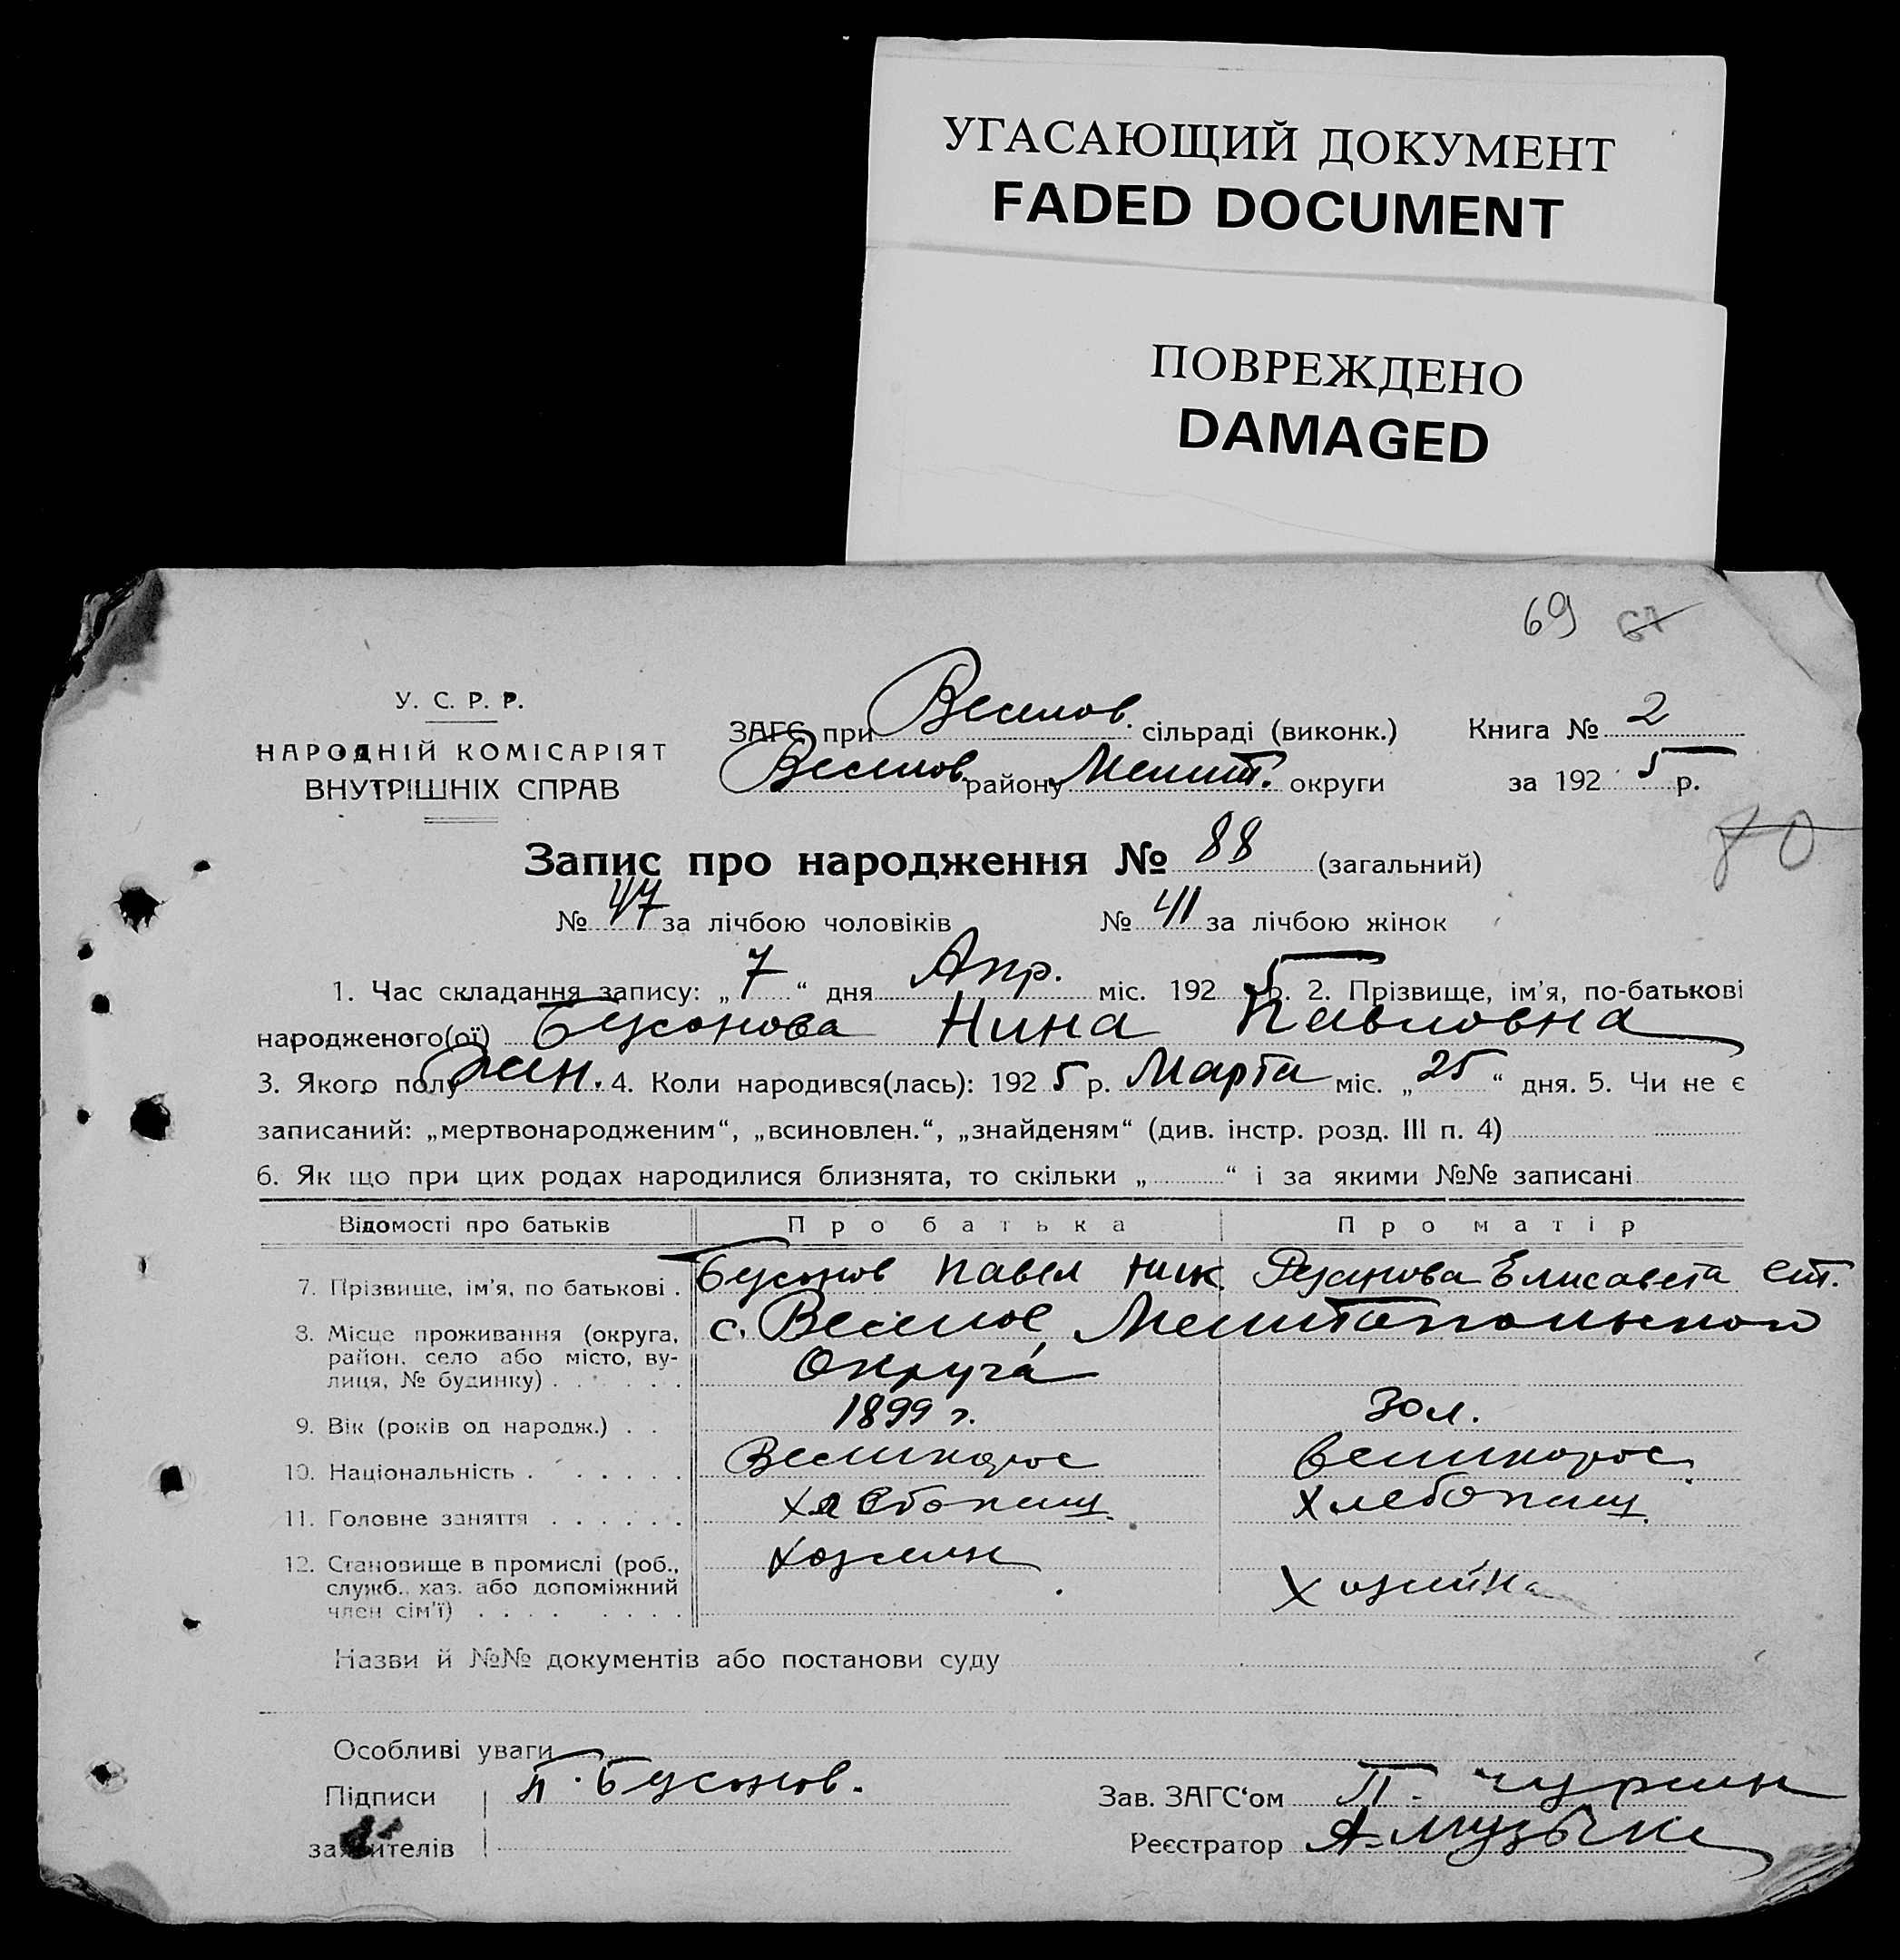 УГАСАЮЩИЙ ДОКУМЕНТ
FADED DOCUMENT
ПОВРЕЖДЕНО
DAMAGED
69
У. С. Р. Р.
НАРОДНІЙ КОМІСАРІЯТ
ВНУТРІШНІХ СПРАВ
ЗАГС при Веселов. сільраді (виконк.) Книга № 2
Веселов. району Мелит. округи за 192 5 р.
80
Запис про народження № 88 (загальний)
№ 47 за лічбою чоловіків № 41 за лічбою жінок
1. Час складання запису: „ 7 “ дня Апр. міс. 192 5 р. 2. Прізвище, ім’я, по-батькові
народженого(ої) Нина Павловна
3. Якого полу жен. 4. Коли народився(лась): 192 5 р. Марта міс. „ 25 “ дня. 5. Чи не є
записаний: „мертвонародженим“, „всиновлен.“, „знайденям“ (див. інстр. розд. III п. 4)
6. Як що при цих родах народилися близнята, то скільки „ “ і за якими №№ записані
Відомості про батьків Про батька Про матір
7. Прізвище, ім’я, по батькові . Павел Ник. Елисавета
8. Місце проживання (округа, с. Веселое, Мелитопольского
район, село або місто, ву-
лиця, № будинку) . . . . . . Округа
9. Вік (років од народж.) . . 1899 г. 30 л.
10. Національність . . . . . . Великорос великорос.
11. Головне заняття . . . . . . Хлебопащ. Хлебопащ.
12. Становище в промислі (роб., Хозяин
служб., хаз. або допоміжний Хозяйка
член сім’ї) . . . . . . . .
Назви й №№ документів або постанови суду
Особливі уваги
Підписи П. Зав. ЗАГС‘ом П.
заявителів Реєстратор А. Музыка